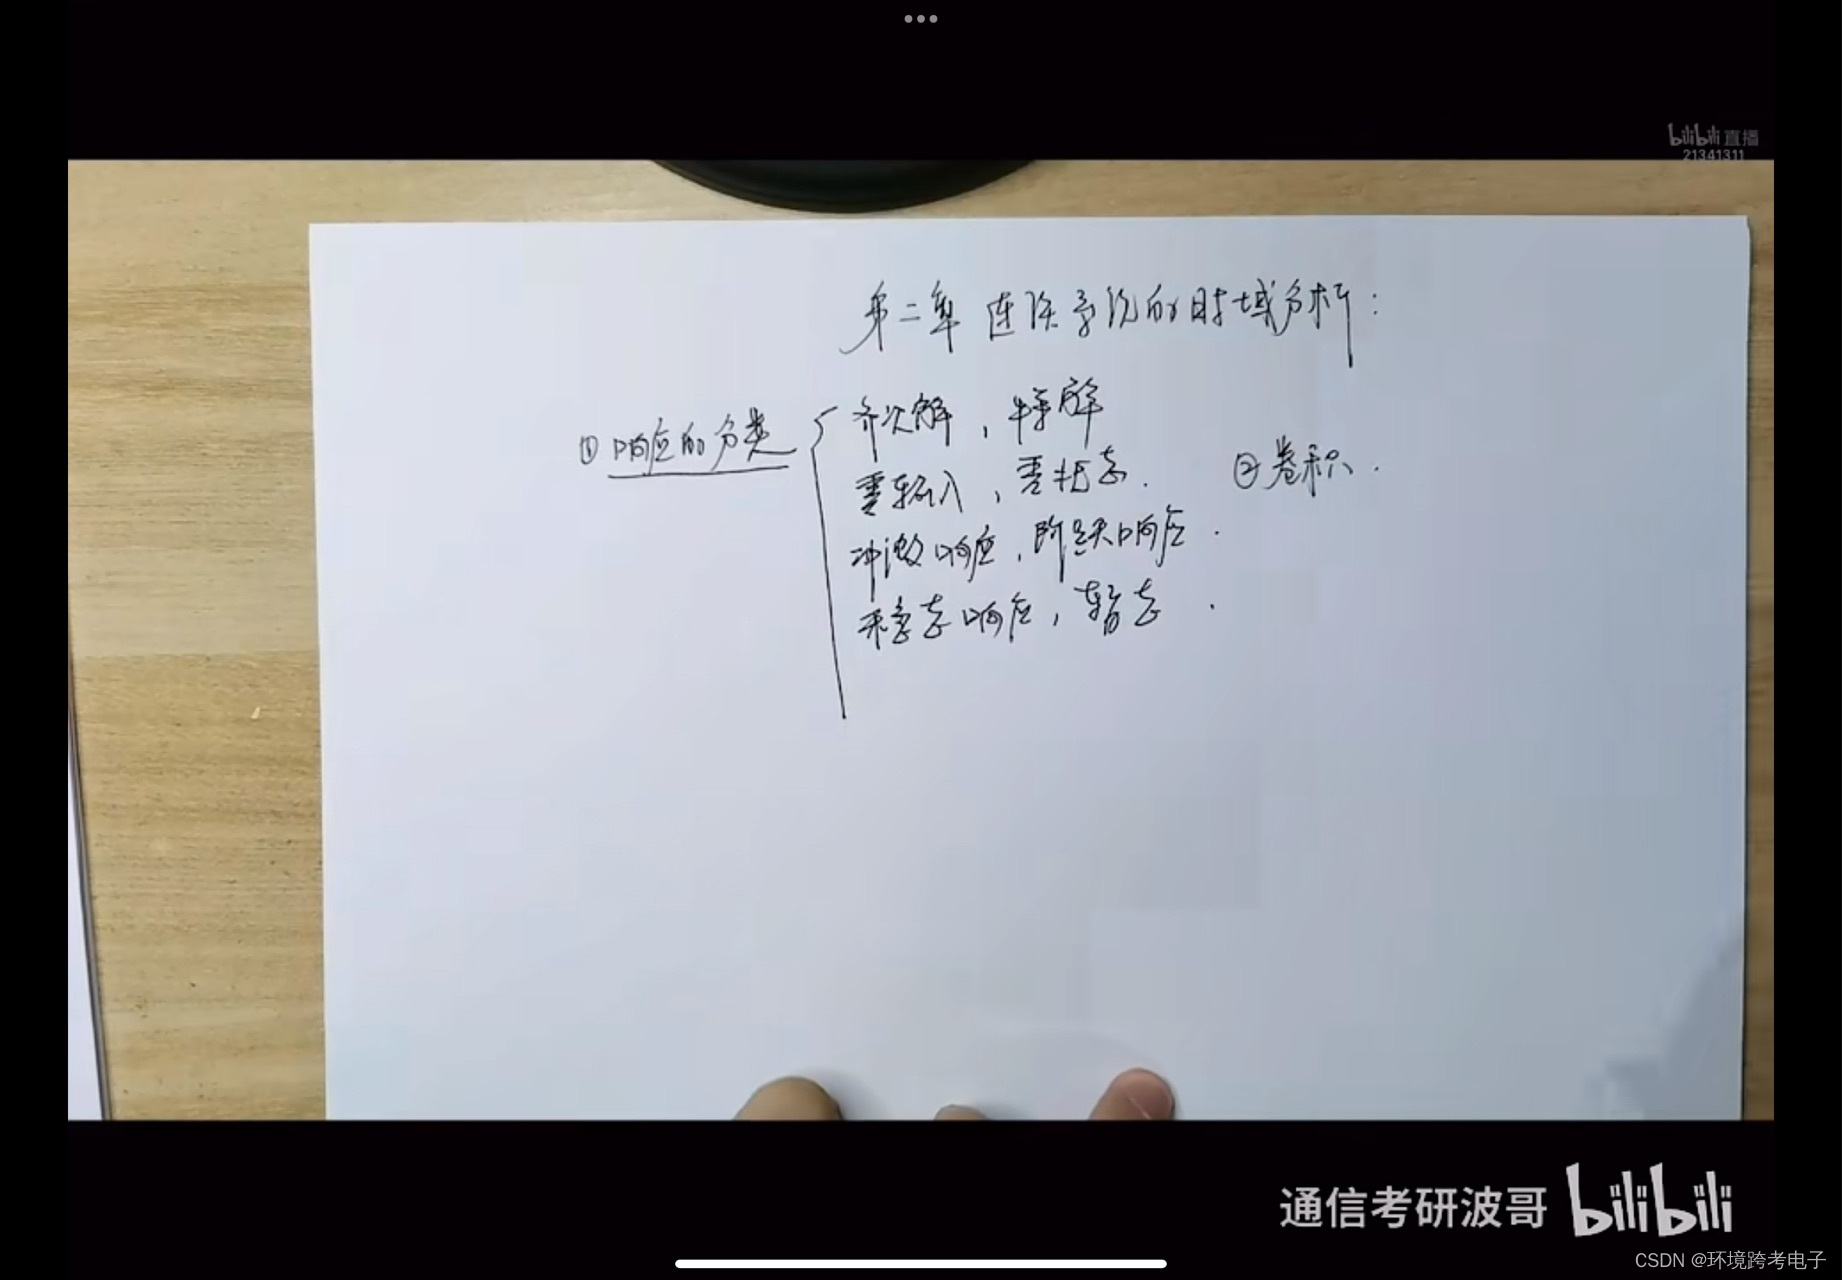 bilibili 直播
21341311
第二章 连续系统的时域分析:
① 响应的分类
齐次解, 特解
零输入, 零状态.
② 卷积.
冲激响应, 阶跃响应.
稳态响应, 暂态.
通信考研波哥 bilibili
CSDN @环境跨考电子